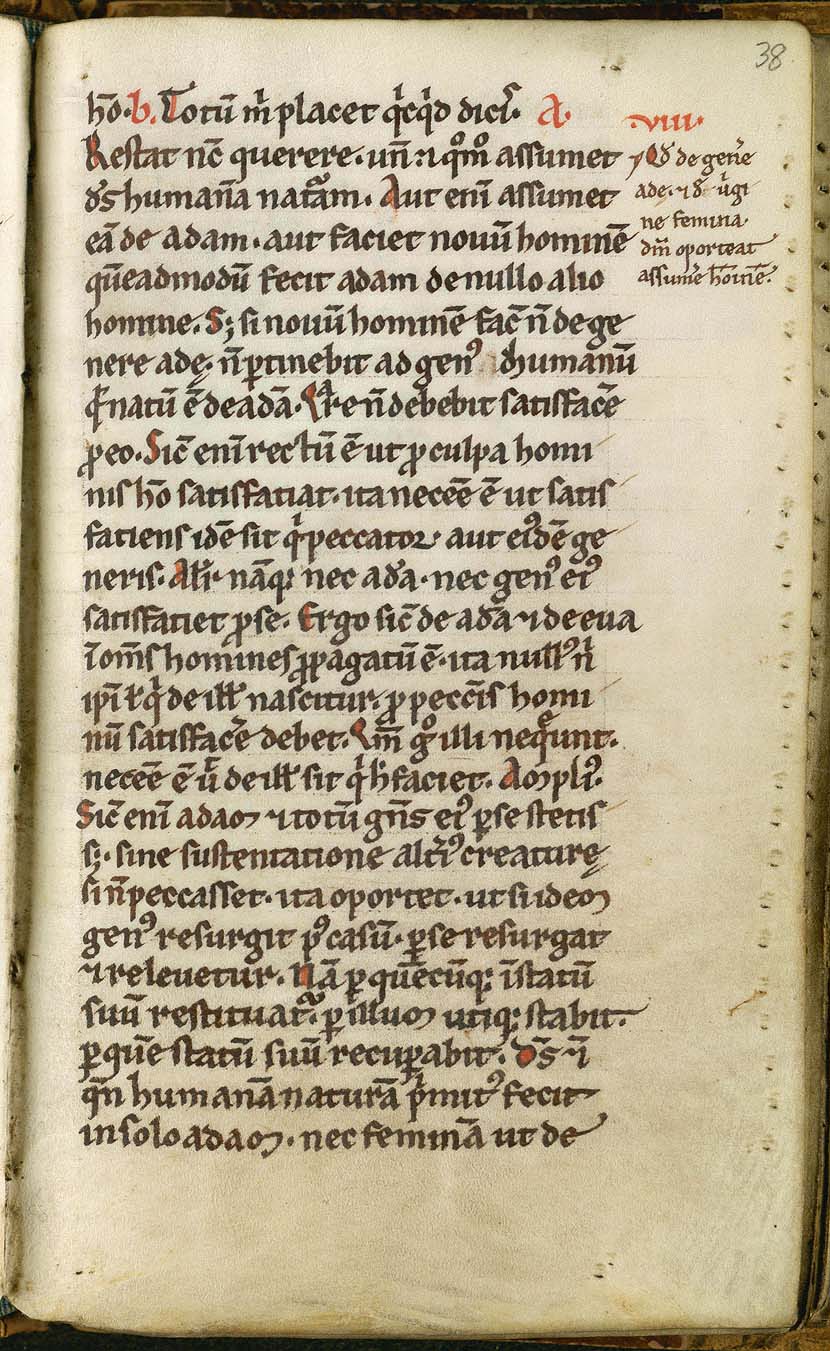 38
hō. b. Totū m̄ placet q̇cq̇d dicı̄s. A.
Restat nc̄ querere. un̄ ⁊ qͦmͦ assumet
ds̄ humanā natᵃ̄m. Aut enı̄ assumet
eā de adam. aut faciet nouū hominē
quēadmodū fecit adam de nullo alio
homine. S; si nouū hominē fac̄ n̄ de ge
nere adę. n̄ ꝑtinebit ad genꝰ humanū
qͩ natū ē de adā. Qᵃre n̄ debebit satisfac̄e
ꝓ eo. Sic̄ enı̄ rectū ē ut ꝓ culpa homi
nis hō satisfatiat. ita necēē ē ut satis
fatiens idē sit qⁱ peccator. aut eiꝰdē ge
neris. Alit̄. nāq; nec adā. nec genꝰ eiꝰ
satisfatiet ꝓ se. Ergo sic̄ de adā ⁊ de eua
ı̄ om̄s homines ꝓpagatū ē. ita nullꝰ nⁱ
ipı̄ ł qⁱ de ill̄ nascitur. ꝓ pecc̄is homi
nū satisfac̄e debet. Qm̄ gͦ illi nequeunt.
necēē ē ū de ill̄ sit qⁱ h̄ faciet. Ampliꝰ.
Sic̄ enı̄ adam ⁊ totū gn̄s eiꝰ ꝑ se stetis
s;. sine sustentatione altiꝰ creaturę
si n̄ peccasset. ita oportet. ut si idem
genꝰ resurgit pꝰ casū. ꝑ se resurgat
⁊ releuetur. Nā ꝑ quēcūq; ı̄ statū
suū restituatᵃ. ꝑ illum utiq; stabit.
ꝑ quē statū suū recuꝑabit. Ds̄ ⁊ı̄
qn̄ humanā naturā pⁱmitꝰ fecit
in solo adam. nec feminā ut de
.viii.
Qd̄ de gen̄e
ade. ⁊ d̄ ūgi
ne femina
dm̄ oporteat
assum̄e hōinē.